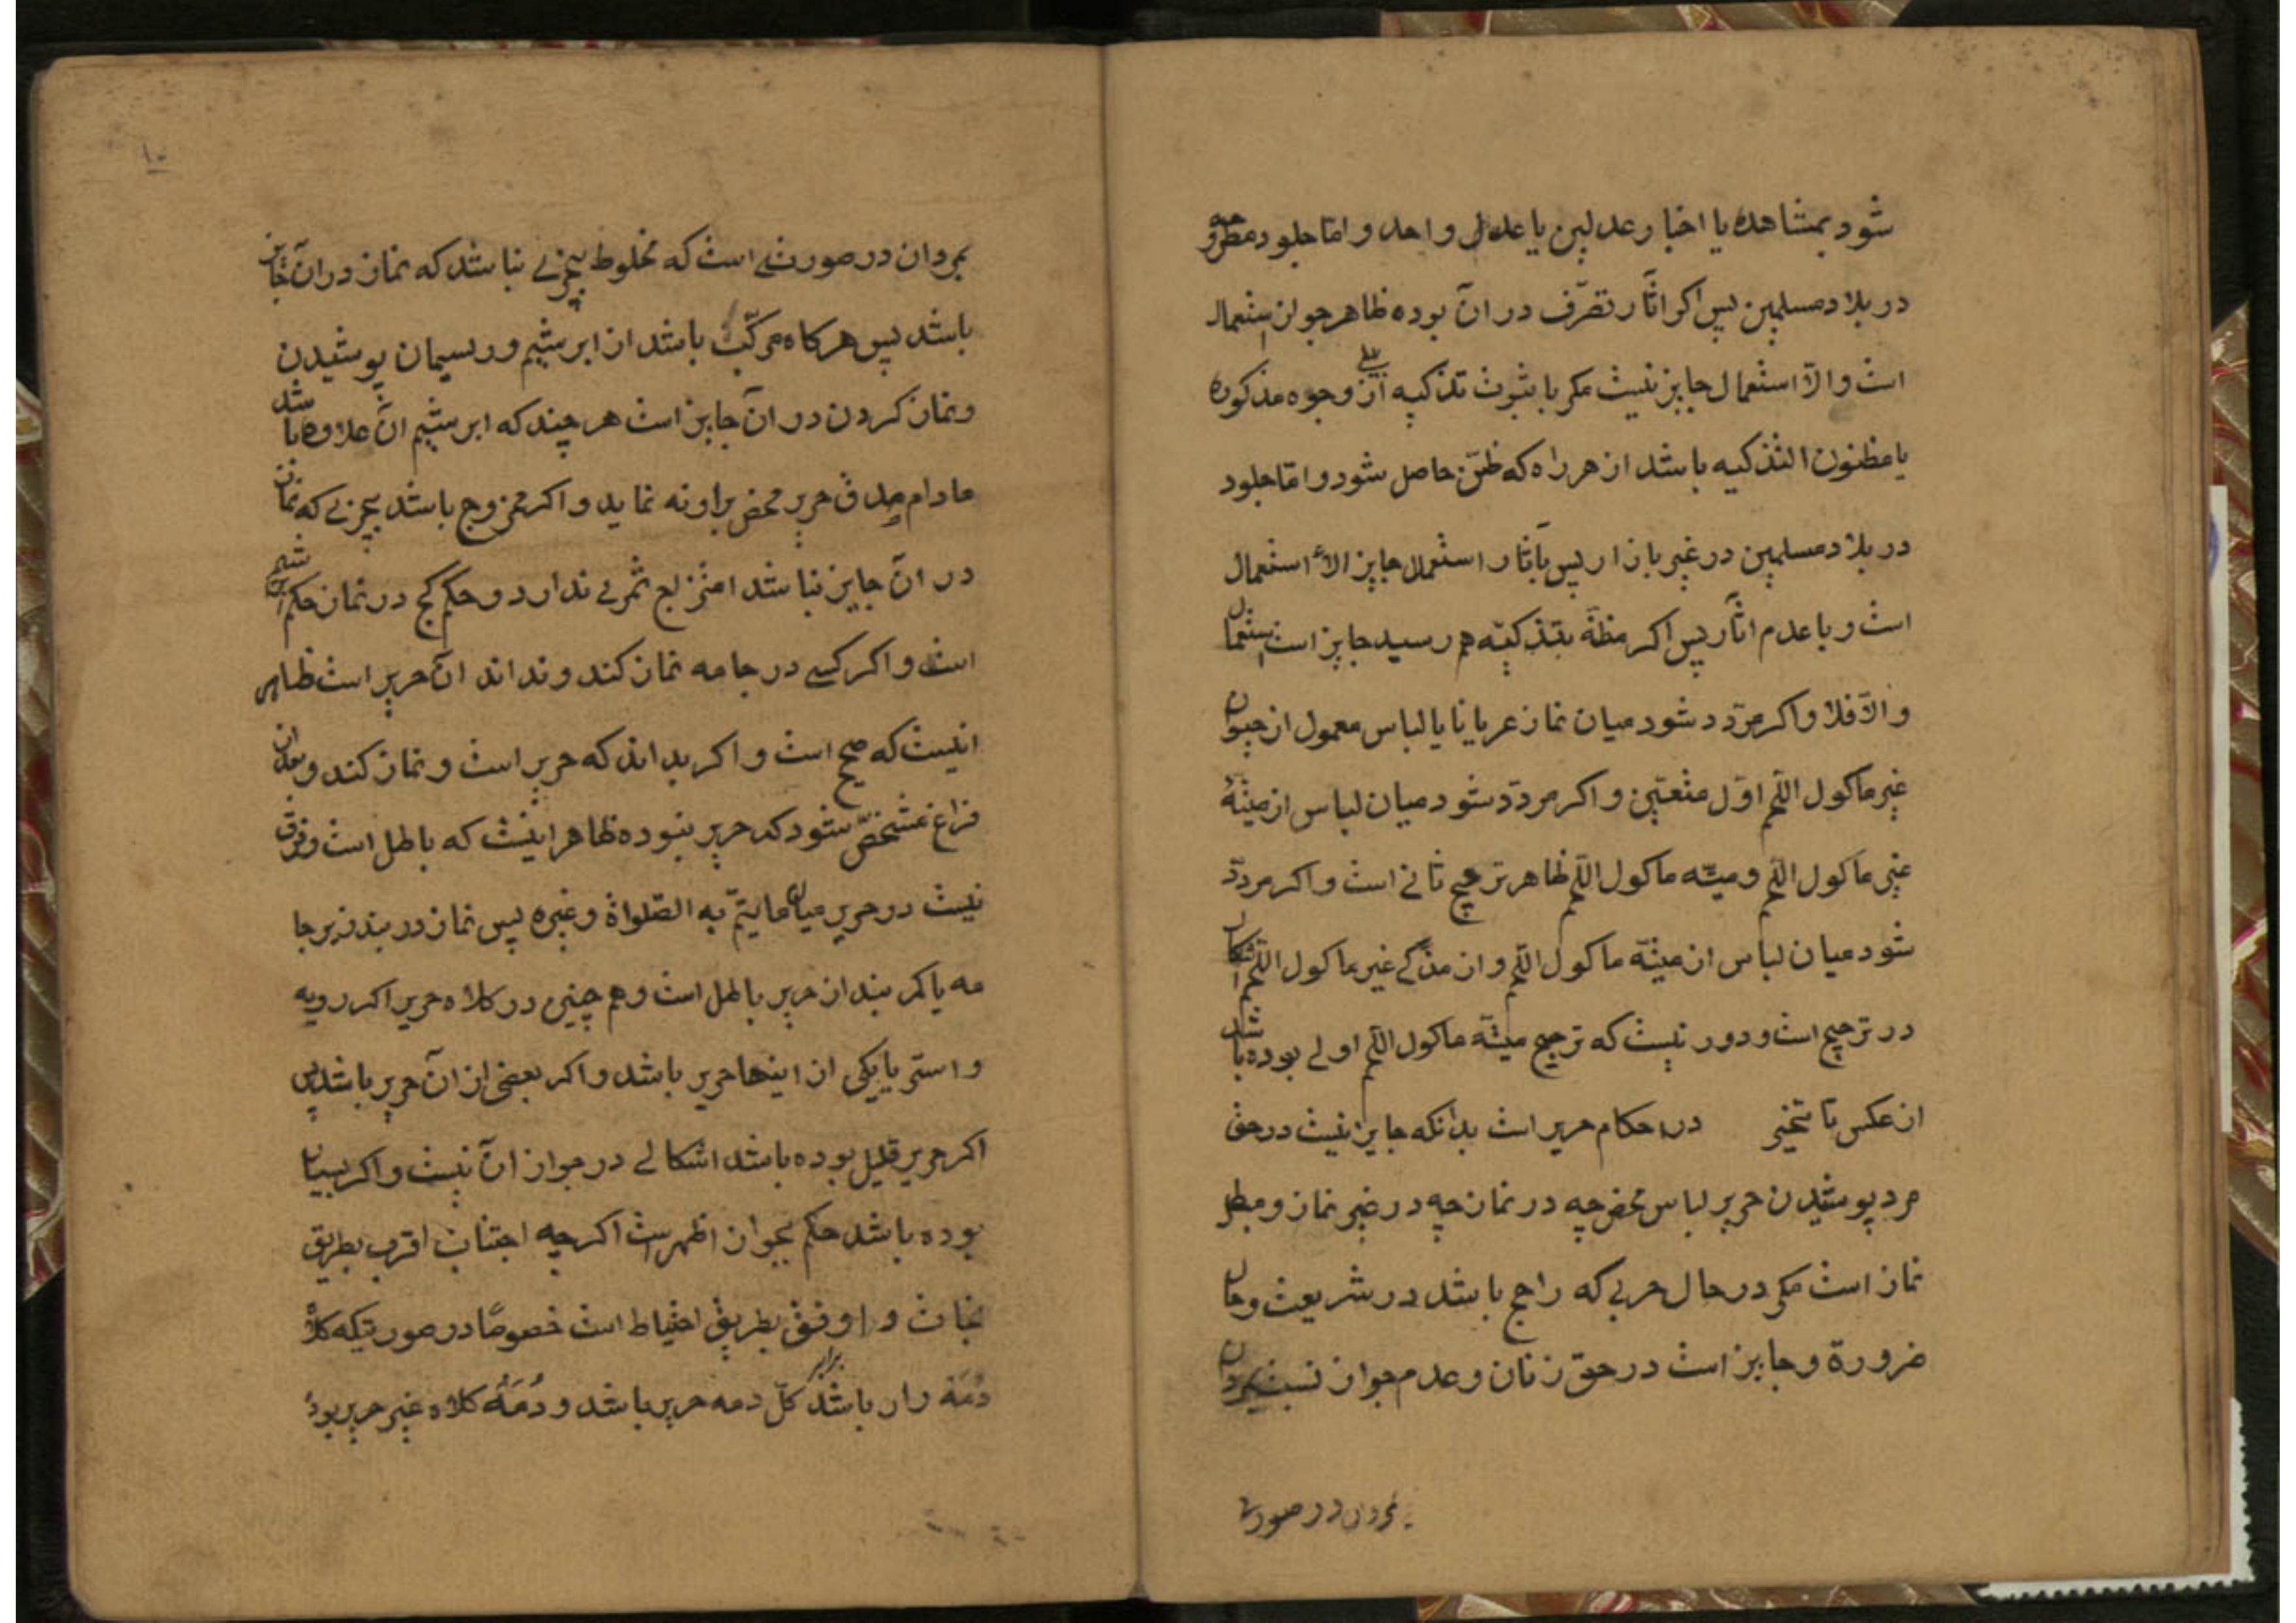 شود بمشاهده یا اخبار عدلین یا عدل واحد و اما جلود مطروحه
در بلاد مسلمین پس اکر اثار تصرّف در ان بوده ظاهر جواز استعمال
است والّا استعمال جایز نیست مکر با ثبوت تذکیه از وجوه مذکوره
یا مظنون التذکیه باشد از هر راه که ظنّ حاصل شود و امّا جلود
در بلاد مسلمین در غیر بازار پس باثار استعمال جایز الاستعمال
است و با عدم اثار پس اکر مظنّه بتذکیّه هم رسید جایز است استعمال
والّا فلا و اکر مردّد شود میان نماز عریانا یا لباس معمول از حیوان
غیر ماکول اللّحم اوّل متعیّن و اکر مردّد شود میان لباس از میتهٔ
غیر ماکول اللّحم و میته ماکول اللّحم ظاهر ترجیح ثانی است و اکر مردّد
شود میان لباس از میتهٔ ماکول اللّحم و از مذکی غیر ماکول اللّحم اشکال
در ترجیح است و دور نیست که ترجیح میتهٔ ماکول اللّحم اولی بوده باشد
از عکس تا تخییر در احکام حریر است بدانکه جایز نیست در حق
مرد پوشیدن حریر لباس محض چه در نماز چه در غیر نماز و مبطل
نماز است مکر در حال حربی که راجح باشد در شریعت و حال
ضرورة و جایز است در حق زنان و عدم جواز نسبت بمردان
بمردان در صورتی
۱۰
بمردان در صورتی است که مخلوط بچیزی نباشد که نماز در ان جایز
باشد پس هرکاه مرکّب باشد از ابریشم و ریسمان پوشیدن
و نماز کردن در ان جایز است هر چند که ابریشم ان علاوه باشد
مادام صدق حریر محض براو نه نماید و اکر ممزوج باشد بچیزی که نماز
در ان جایز نباشد امتزاج ثمری ندارد و حکم کج در نماز حکم ابریشم
است و اکر کسی در جامه نماز کند و نداند ان حریر است ظاهر
انیست که صحیح است و اکر بداند که حریر است و نماز کند و بعد از ان
فراغ مشخصّ شود که حریر نبوده ظاهر اینست که باطل است و فرق
نیست در حریر میان ما یتمّ به الصّلواة و غیره پس نماز در بند زیر جا
مه یا کمر بند از حریر باطل است و هم چنین در کلاه حریر اکر رویه
و استر یا یکی از اینها حریر باشد و اکر بعضی از ان حریر باشد پس
اکر حریر قلیل بوده باشد اشکالی در جواز ان نیست و اکر بسیار
بوده باشد حکم بجواز اظهر است اکرچه اجتناب اقرب بطریق
نجات و اوفق بطریق احتیاط است خصوصًا در صورتیکه کلاه
دُمَه دار باشد کلّ دمه حریر باشد و دُمَهٔ کلاه غیر حریر بود